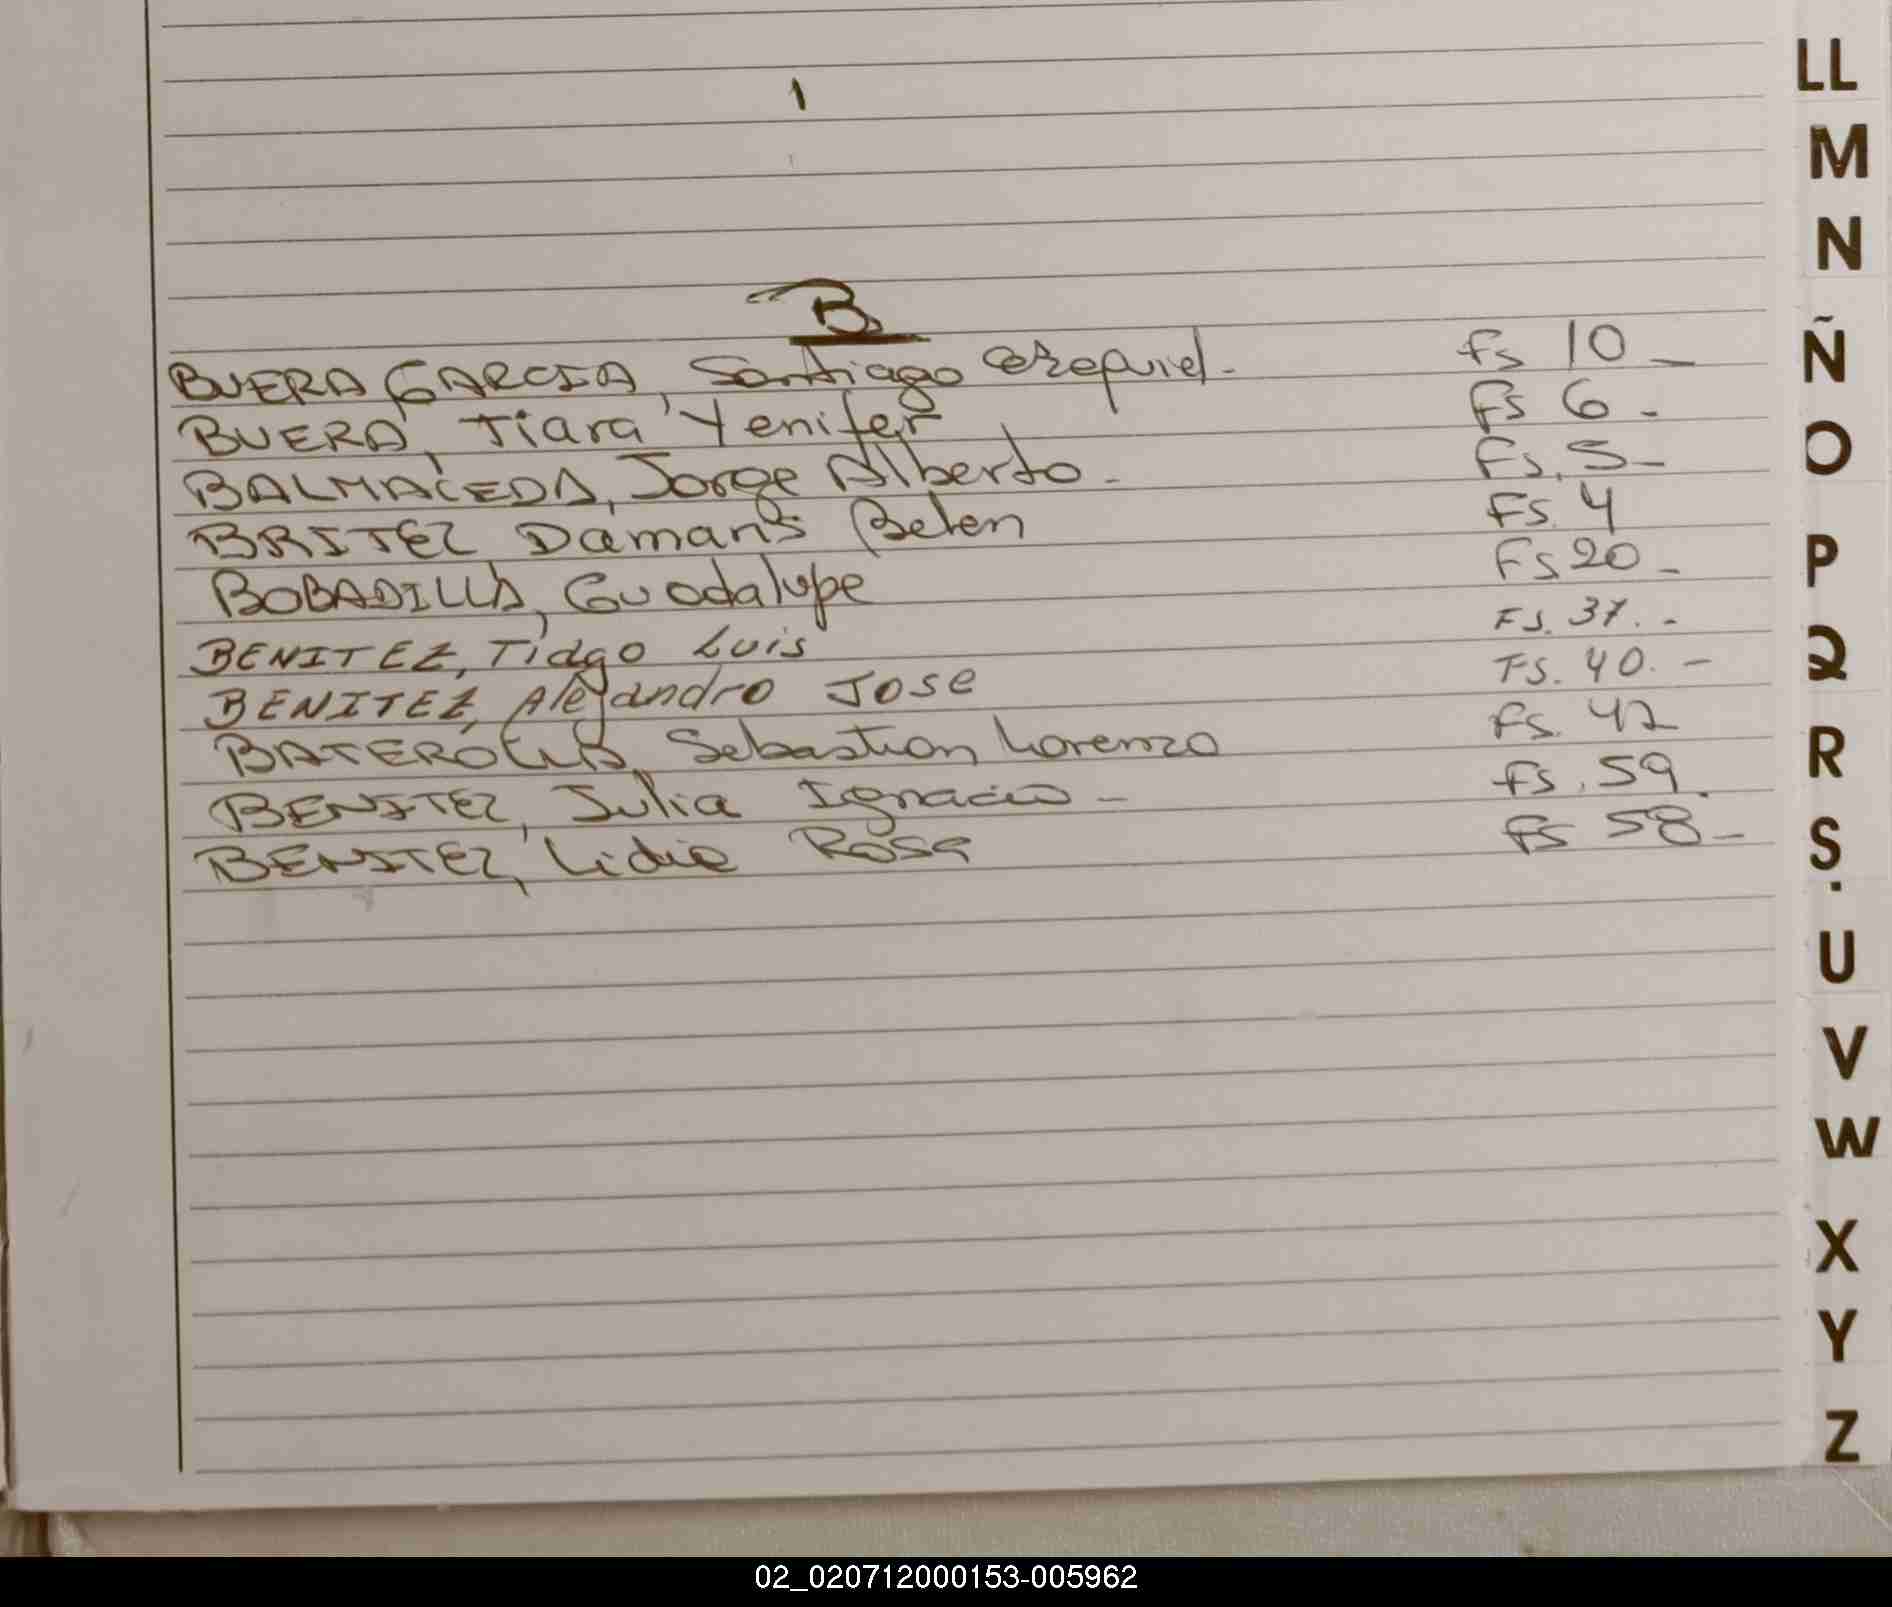 B
BUERA GARCIA, Santiago Ezequiel. Fs 10
BUERA, Tiara Yenifer Fs 6.
BALMACEDA, Jorge Alberto. Fs. 5
BRITEZ Damaris Belen Fs. 4
BOBADILLA, Guadalupe Fs 20
BENITEZ, Tiago Luis Fs. 37.
BENITEZ, Alejandro Jose Fs. 40.
Sebastian Lorenzo Fs. 42
BENITEZ, Julia Ignacio Fs. 59.
BENITEZ, Lidia Rosa Fs 58
LL
M
N
Ñ
O
P
Q
R
S
U
V
W
X
Y
Z
02_020712000153-005962